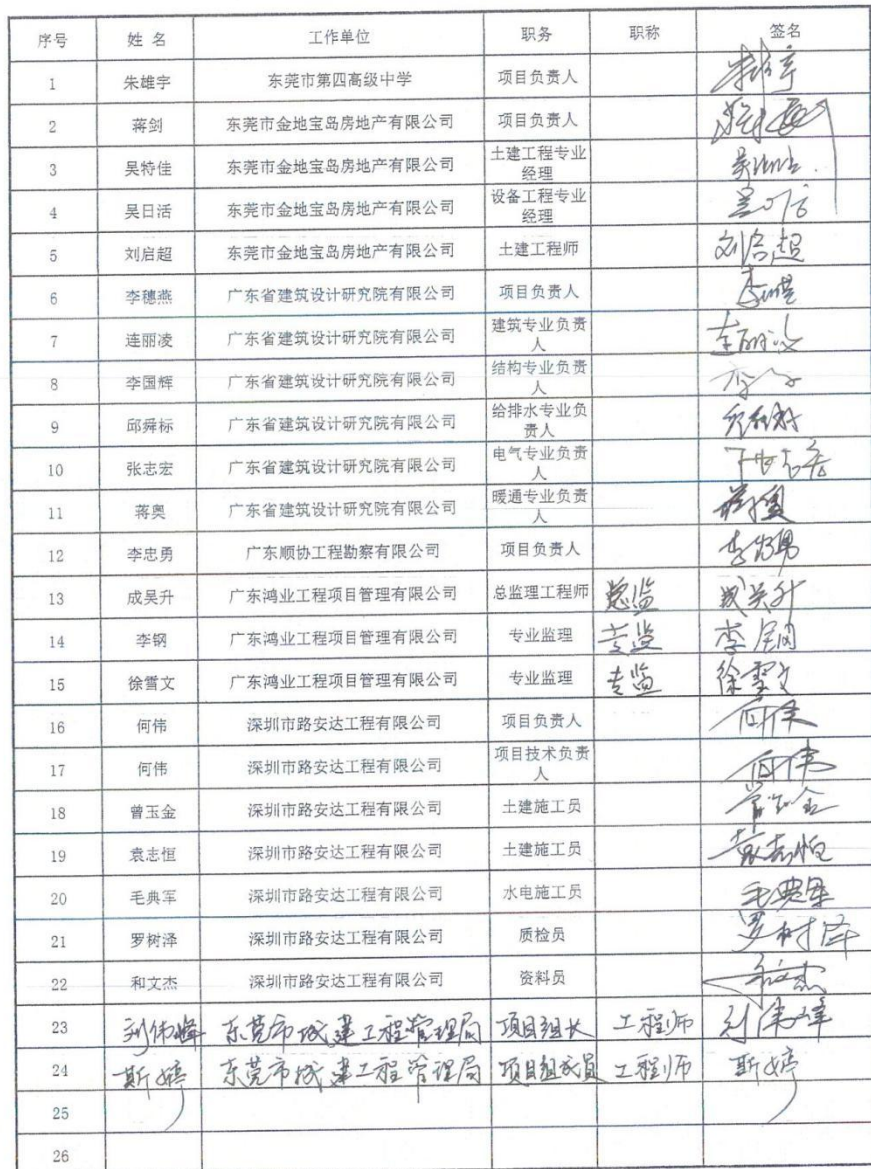 序号 姓 名 工作单位 职务 职称 签名
1 朱雄宇 东莞市第四高级中学 项目负责人
2 蒋剑 东莞市金地宝岛房地产有限公司 项目负责人
3 吴特佳 东莞市金地宝岛房地产有限公司 土建工程专业
经理
4 吴日活 东莞市金地宝岛房地产有限公司 设备工程专业
经理
5 刘启超 东莞市金地宝岛房地产有限公司 土建工程师 刘启超
6 李穗燕 广东省建筑设计研究院有限公司 项目负责人
7 连丽凌 广东省建筑设计研究院有限公司 建筑专业负责
人
8 李国辉 广东省建筑设计研究院有限公司 结构专业负责
人
9 邱舜标 广东省建筑设计研究院有限公司 给排水专业负
责人
10 张志宏 广东省建筑设计研究院有限公司 电气专业负责
人
11 蒋奥 广东省建筑设计研究院有限公司 暖通专业负责
人
12 李忠勇 广东顺协工程勘察有限公司 项目负责人 李忠勇
13 成吴升 广东鸿业工程项目管理有限公司 总监理工程师 总监
14 李钢 广东鸿业工程项目管理有限公司 专业监理 专监 李钢
15 徐雪文 广东鸿业工程项目管理有限公司 专业监理 专监 徐雪文
16 何伟 深圳市路安达工程有限公司 项目负责人 何伟
17 何伟 深圳市路安达工程有限公司 项目技术负责 何伟
人
18 曾玉金 深圳市路安达工程有限公司 土建施工员
19 袁志恒 深圳市路安达工程有限公司 土建施工员 袁志恒
20 毛典军 深圳市路安达工程有限公司 水电施工员 毛典军
21 罗树泽 深圳市路安达工程有限公司 质检员 罗树泽
22 和文杰 深圳市路安达工程有限公司 资料员 和文杰
23 刘伟峰 东莞市城建工程管理局 项目组长 工程师 刘伟峰
24 斯婷 东莞市城建工程管理局 项目组成员 工程师 斯婷
25
26